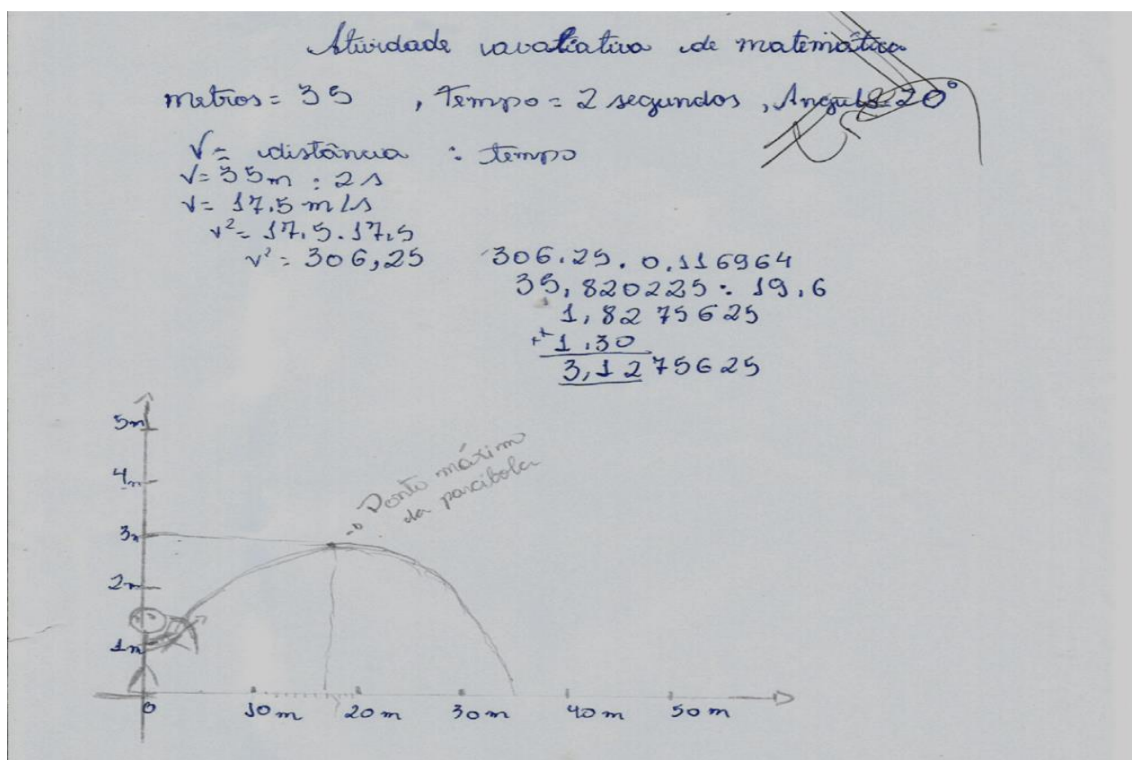 Atividade avaliativa de matemática
metros = 35 , Tempo = 2 segundos , Angulo 20°
V = distância : tempo
V = 35m : 2s
V = 17.5 m/s
v² = 17,5 . 17,5
v² = 306,25
306.25 . 0.116964
35,820225 : 19,6
1,8275625
++1.30
3,1275625
5m
4m
3m
2m
1m
Ponto máxim
da parábola
0 10m 20m 30m 40m 50m